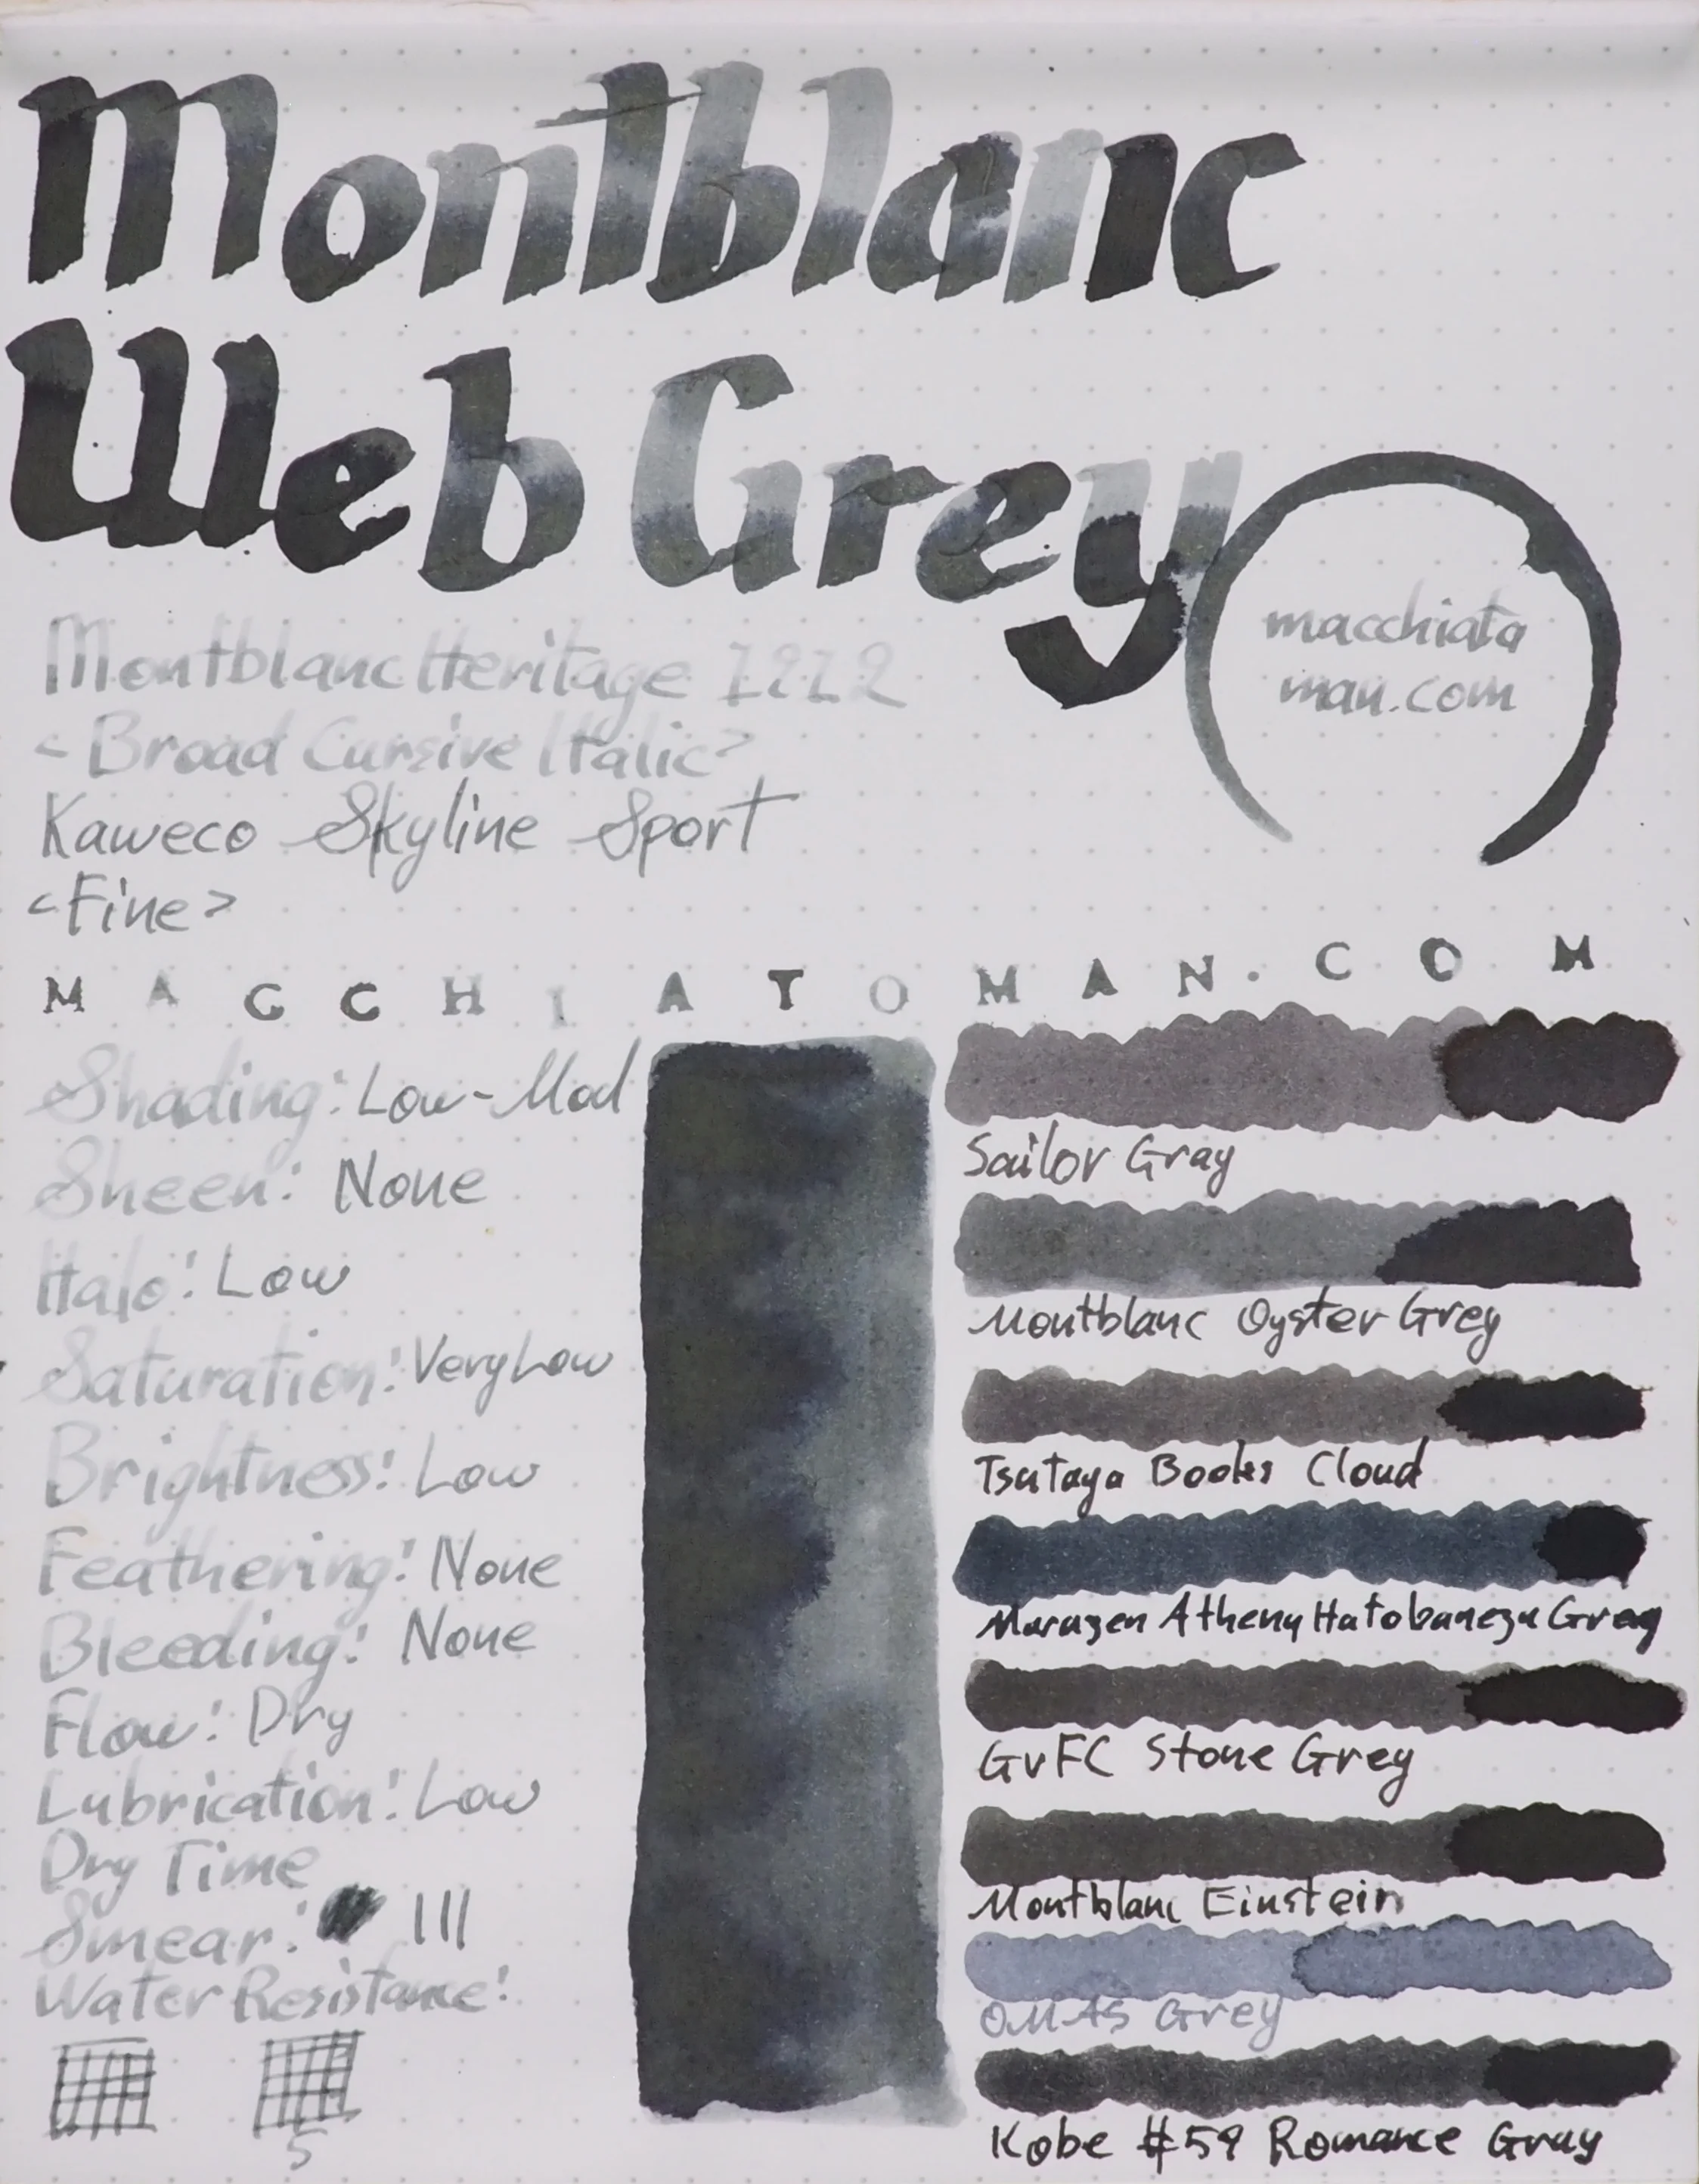 Montblanc
Web Grey
macchiato
man.com
Montblanc Heritage 1912
<Broad Cursive Italic>
Kaweco Skyline Sport
<Fine>
MACCHIATOMAN.COM
Shading: Low-Mod
Sheen: None
Halo: Low
Saturation: Very Low
Brightness: Low
Feathering: None
Bleeding: None
Flow: Dry
Lubrication: Low
Dry Time
Smear:
Water Resistance:
5
Sailor Gray
Montblanc Oyster Grey
Tsutaya Books Cloud
Maruzen Athena Hatobanezu Gray
GvFC Stone Grey
Montblanc Einstein
OMAS Grey
Kobe #59 Romance Gray